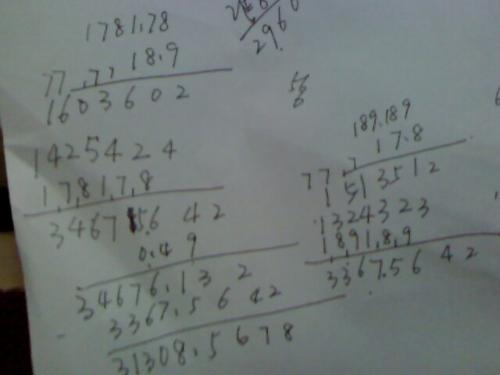 1781.78
18.9
1603602
1425424
1,7,81,7,8
346756 42
0.49
34676.13 2
3367.5642
31308.5678
296
56
6
189.189
17.8
1513512
1324323
1,8,91,8,9
3367.5642